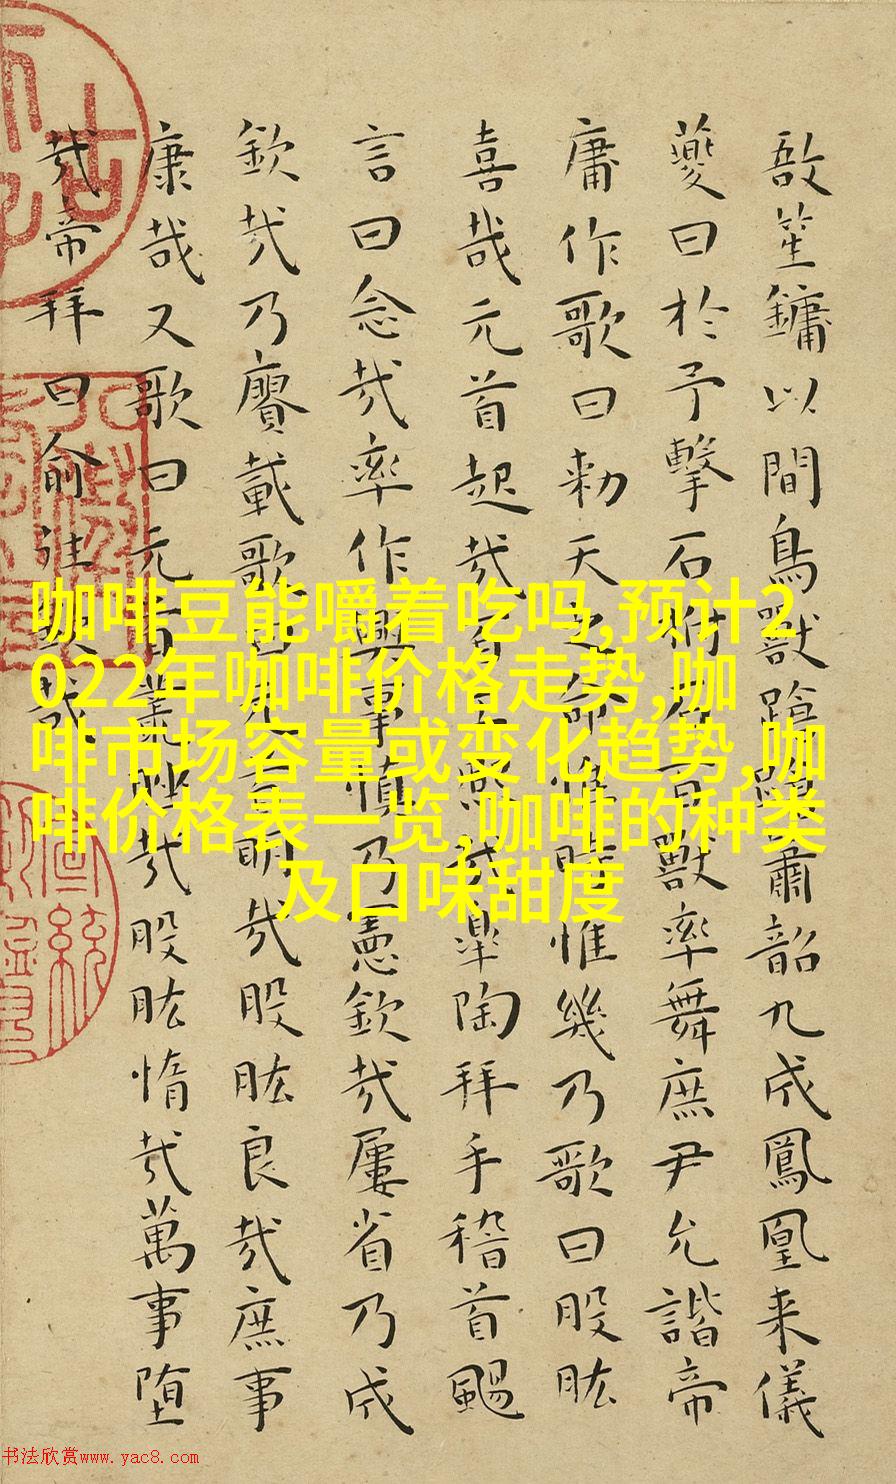 敔笙鏞以間鳥獸蹌蹌簫韶九成鳳凰来儀
夔曰於予擊石拊石百獸率舞庶尹允諧帝
庸作歌曰勑天之命惟時惟幾乃歌曰股肱
喜哉元首起哉百工熙哉臯陶拜手稽首颺
言曰念哉率作興事慎乃憲欽哉屢省乃成
欽哉乃賡載歌曰元首明哉股肱良哉庶事
康哉又歌曰元首叢脞哉股肱惰哉萬事堕
哉帝拜曰俞往欽哉
咖啡豆能嚼着吃吗,预计2
022年咖啡价格走势,咖
啡市场容量或变化趋势,咖
啡价格表一览,咖啡的种类
及口味甜度
书法欣赏www.yac8.com